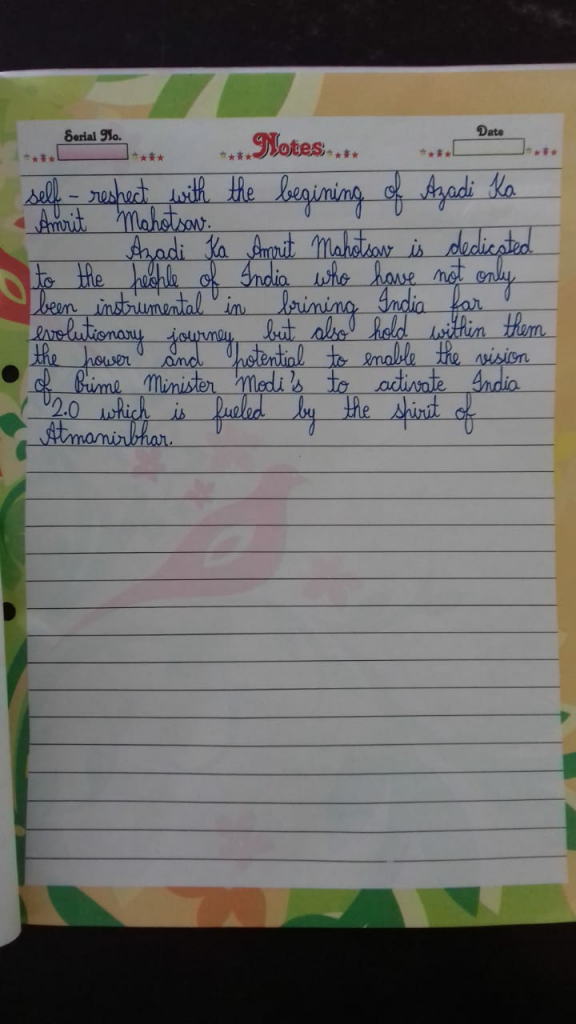 Serial No.
Notes
Date
self - respect with the begining of Azadi Ka
Amrit Mahotsav.
Azadi Ka Amrit Mahotsav is dedicated
to the people of India who have not only
been instrumental in brining India far
evolutionary journey but also hold within them
the power and potential to enable the vision
of Prime Minister Modi's to activate India
2.0 which is fueled by the spirit of
Atmanirbhar.